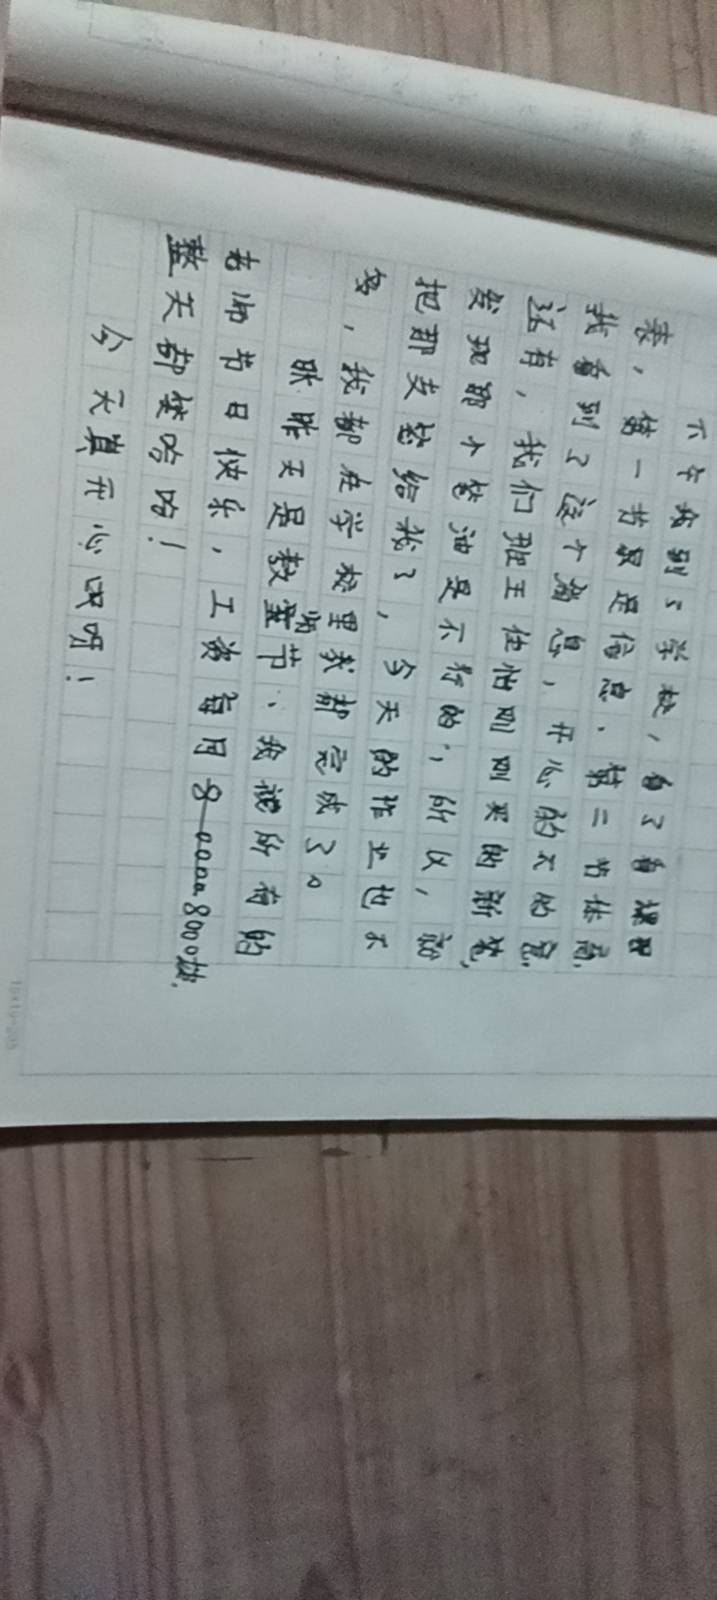 下午我到了学校，看了看课程
表，第一节是信息、第二节体育，
我看到了这个信息，开心的不的
还有，我们班王佳怡刚刚买的新笔，
发现那个笔油是不行的，所以，就
把那支笔给我了，今天的作业也不
多，我都在学校里我都完成了。
昨昨天是教师节、我祝所有的
老师节日快乐，工资每月8000块，
整天都笑哈哈！
今天真开心呀！